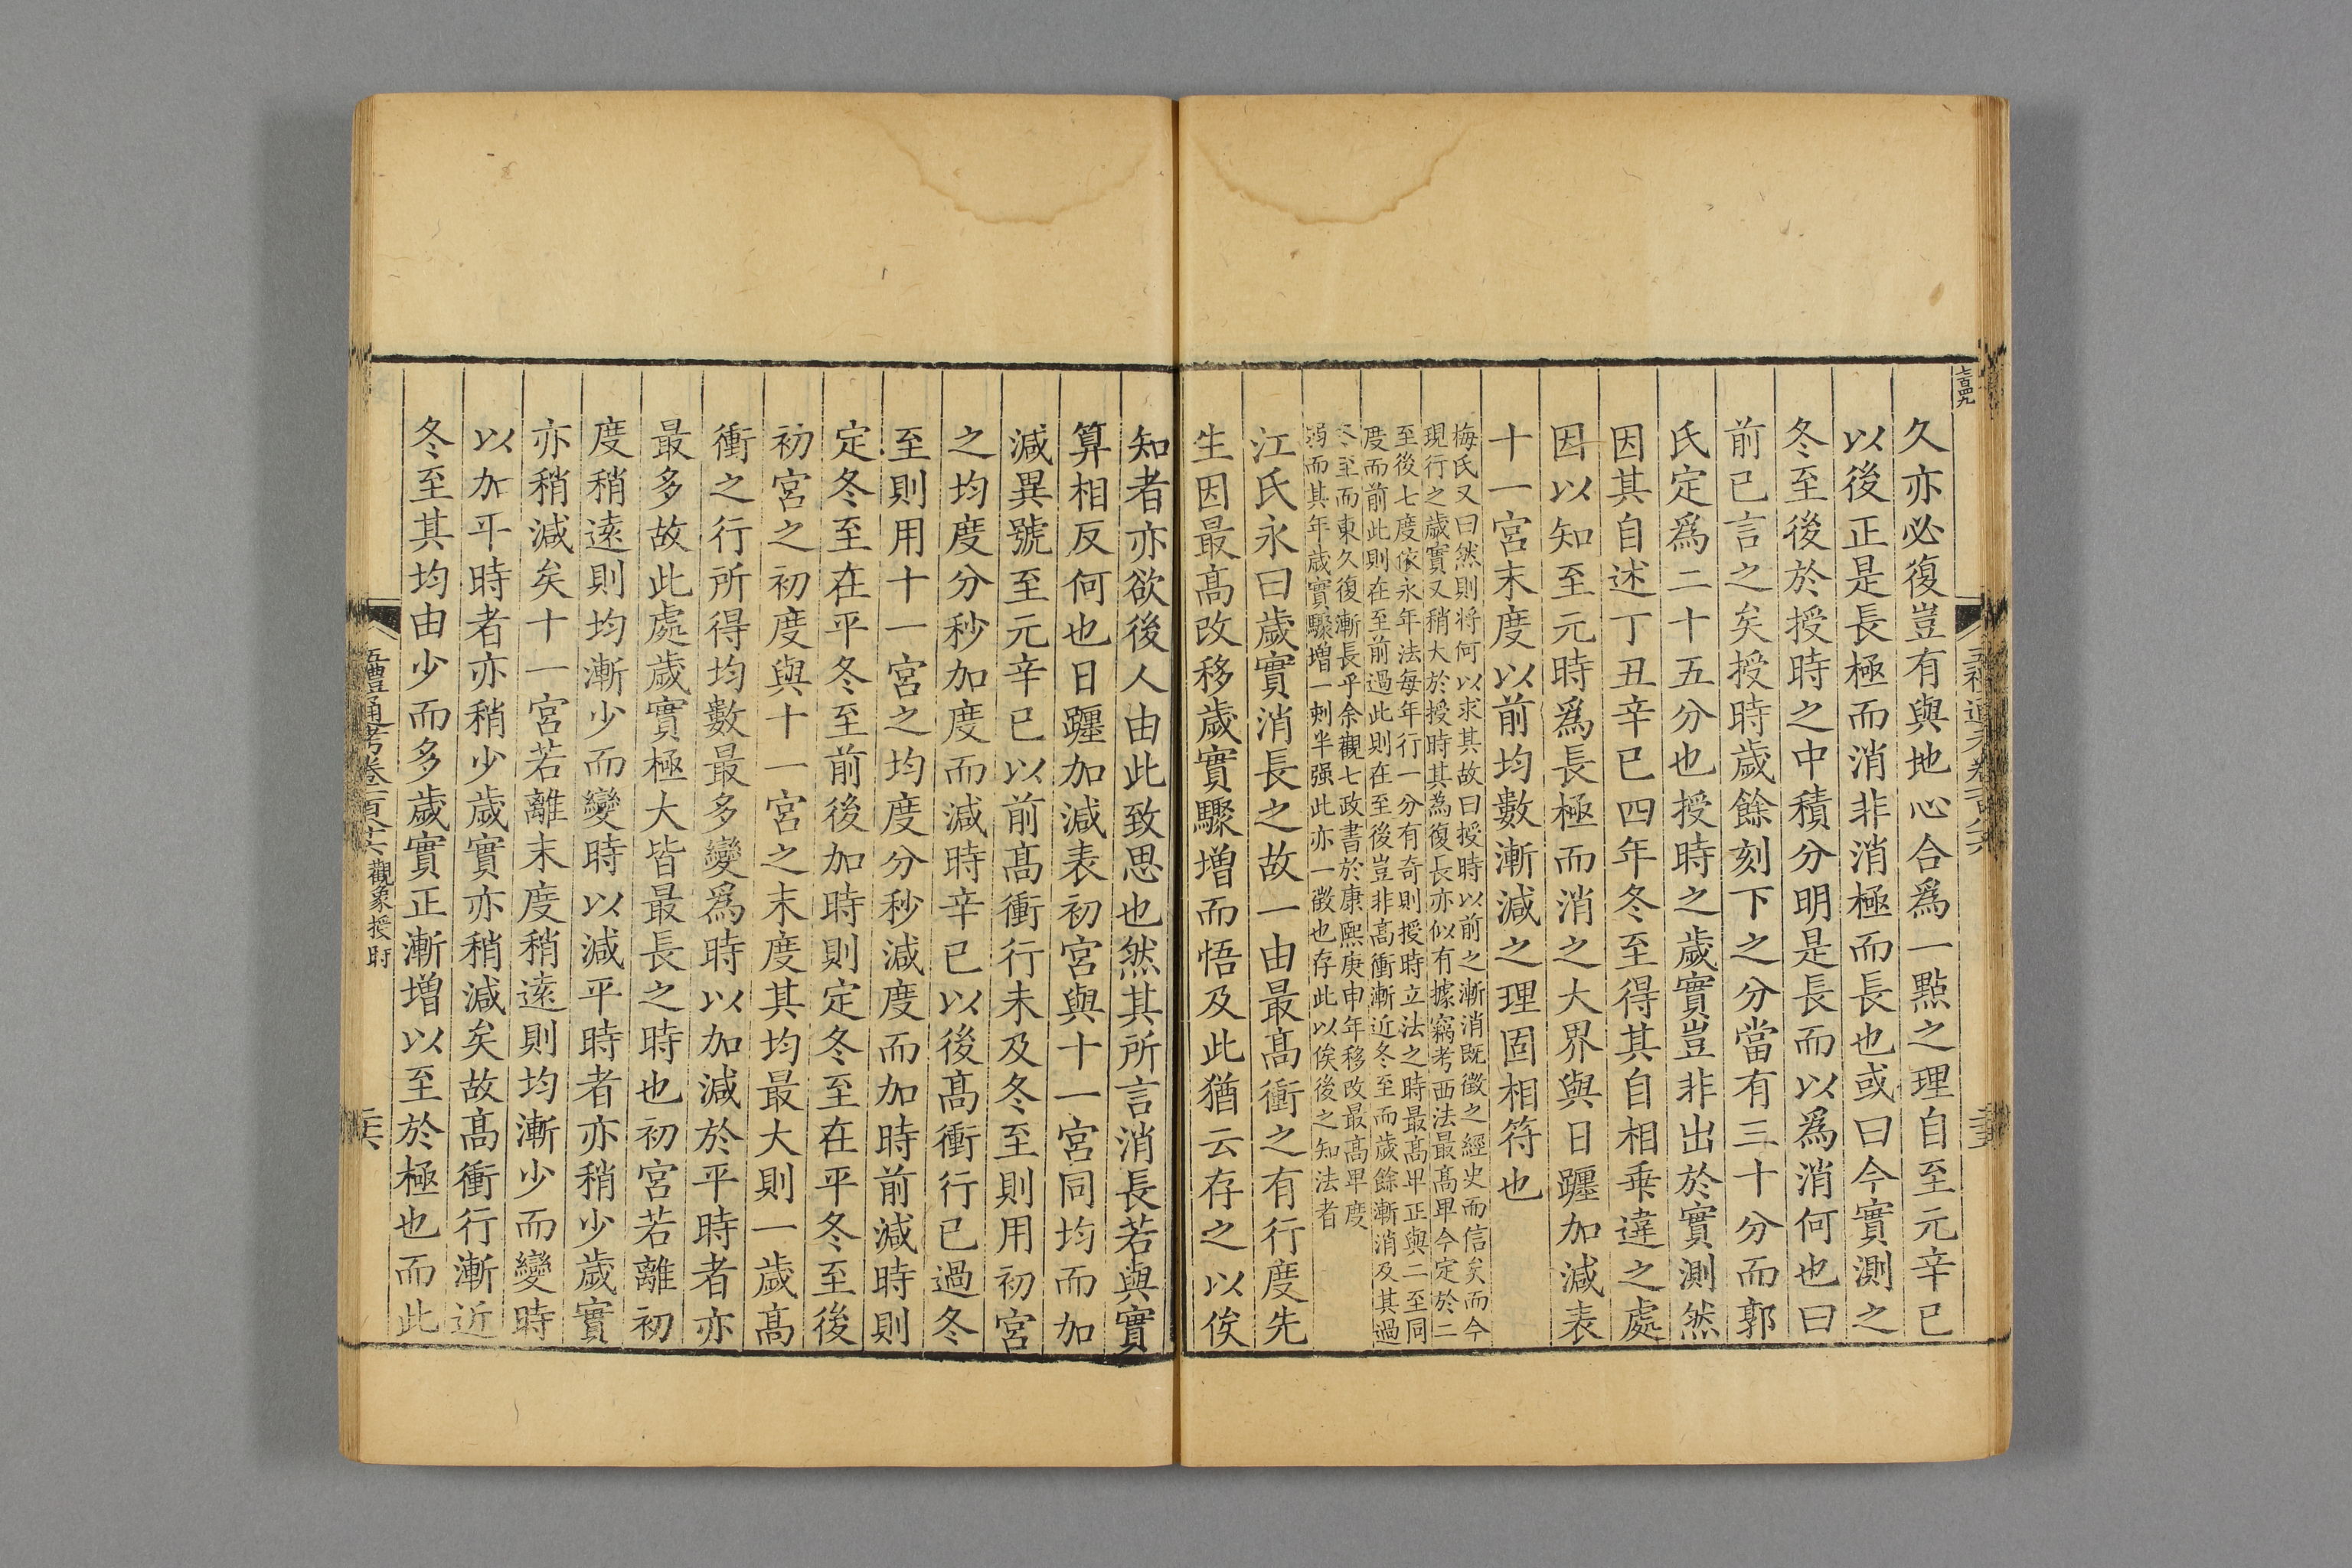 七百四九
久亦必復豈有與地心合爲一點之理自至元辛巳
以後正是長極而消非消極而長也或曰今實測之
冬至後於授時之中積分明是長而以爲消何也曰
前已言之矣授時歲餘刻下之分當有三十分而郭
氏定爲二十五分也授時之歲實豈非出於實測然
因其自述丁丑辛巳四年冬至得其自相乗違之處
因以知至元時爲長極而消之大界與日躔加減表
十一宮末度以前均數漸減之理固相符也
梅氏又曰然則将何以求其故曰授時以前之漸消既徵之經史而信矣而今
現行之歲實又稍大於授時其為復長亦似有據竊考西法最髙卑今定於二
至後七度依永年法每年行一分有奇則授時立法之時最髙卑正與二至同
度而前此則在至前過此則在至後豈非髙衝漸近冬至而歲餘漸消及其過
冬至而東久復漸長乎余觀七政書於康熙庚申年移改最髙卑度
弱而其年歲實驟增一刺半强此亦一徵也存此以俟後之知法者
江氏永曰歲實消長之故一由最髙衝之有行度先
生因最髙改移歲實驟增而悟及此猶云存之以俟
知者亦欲後人由此致思也然其所言消長若與實
算相反何也日躔加減表初宮與十一宮同均而加
減異號至元辛巳以前髙衝行未及冬至則用初宮
之均度分秒加度而減時辛巳以後髙衝行已過冬
至則用十一宮之均度分秒減度而加時前減時則
定冬至在平冬至前後加時則定冬至在平冬至後
初宮之初度與十一宮之末度其均最大則一歲髙
衝之行所得均數最多變爲時以加減於平時者亦
最多故此處歲實極大皆最長之時也初宮若離初
度稍逺則均漸少而變時以減平時者亦稍少歲實
亦稍減矣十一宮若離末度稍逺則均漸少而變時
以加平時者亦稍少歲實亦稍減矣故髙衝行漸近
冬至其均由少而多歲實正漸增以至於極也而此
五禮通考卷一百八十六 觀象授時